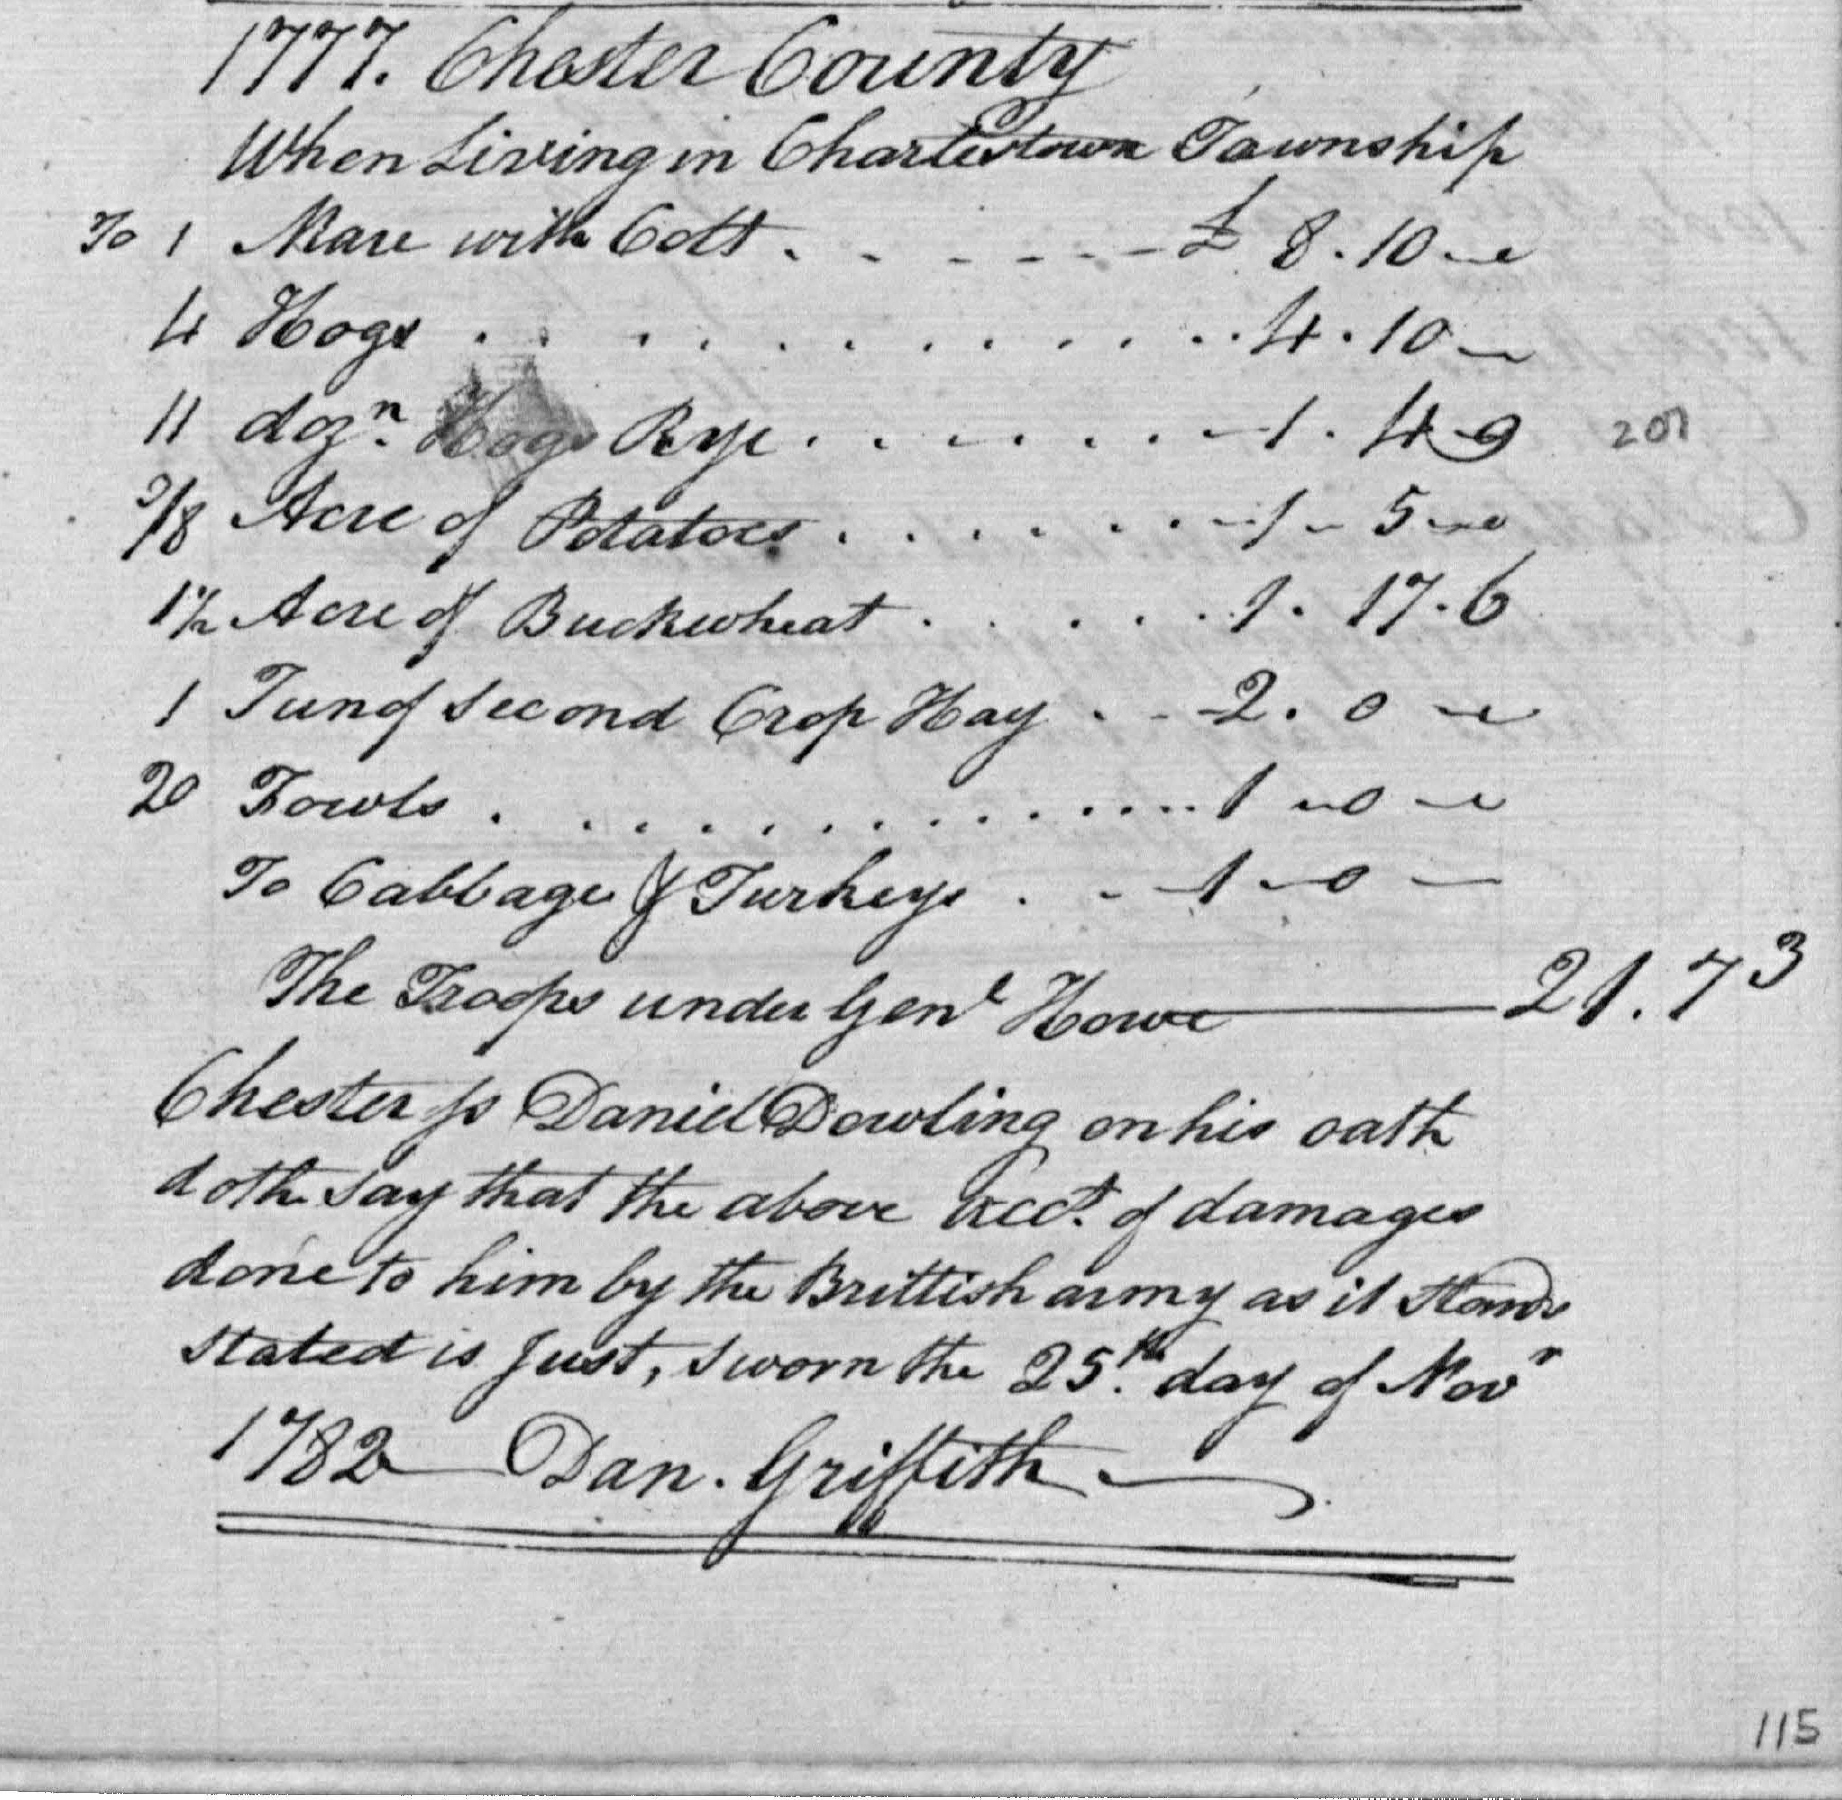 1777. Chester County
When Living in Charlestown Township
To 1 Mare with Colt . . - - - - - £ 8.10 -
4 Hogs . . . . . . . . . . . . . 4.10 -
11 dozn. Hogs Rye . . . . . . . - 1.4-9 207
3/8 Acre of Potatoes . . . . . . - 1-5-0
1 1/2 Acre of Buckwheat . . . . . . 1.17.6
1 Tun of Second Crop Hay . . - 2.0 -
20 Fowls . . . . . . . . . . . . . 1-0 -
To Cabbage & Turkeys . . - 1-0 -
The Troops under Genl Howe — 21.7 3
Chester ss Daniel Dowling on his oath
doth say that the above acct. of damages
done to him by the Brittish army as it Stands
Stated is Just, Sworn the 25th. day of Novr
1782 — Dan. Griffith —
115